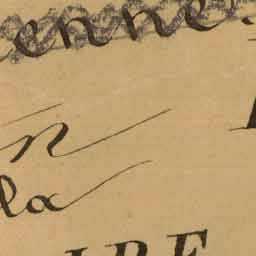 enne
n
la
IRE